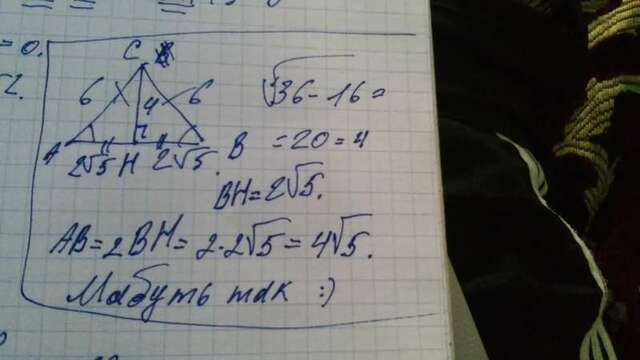 = 0.
C
6 4 6
A 2√5 H 2√5 B
√36-16 =
= 20 = 4
BH = 2√5.
AB = 2BH = 2·2√5 = 4√5.
Мабуть так :)